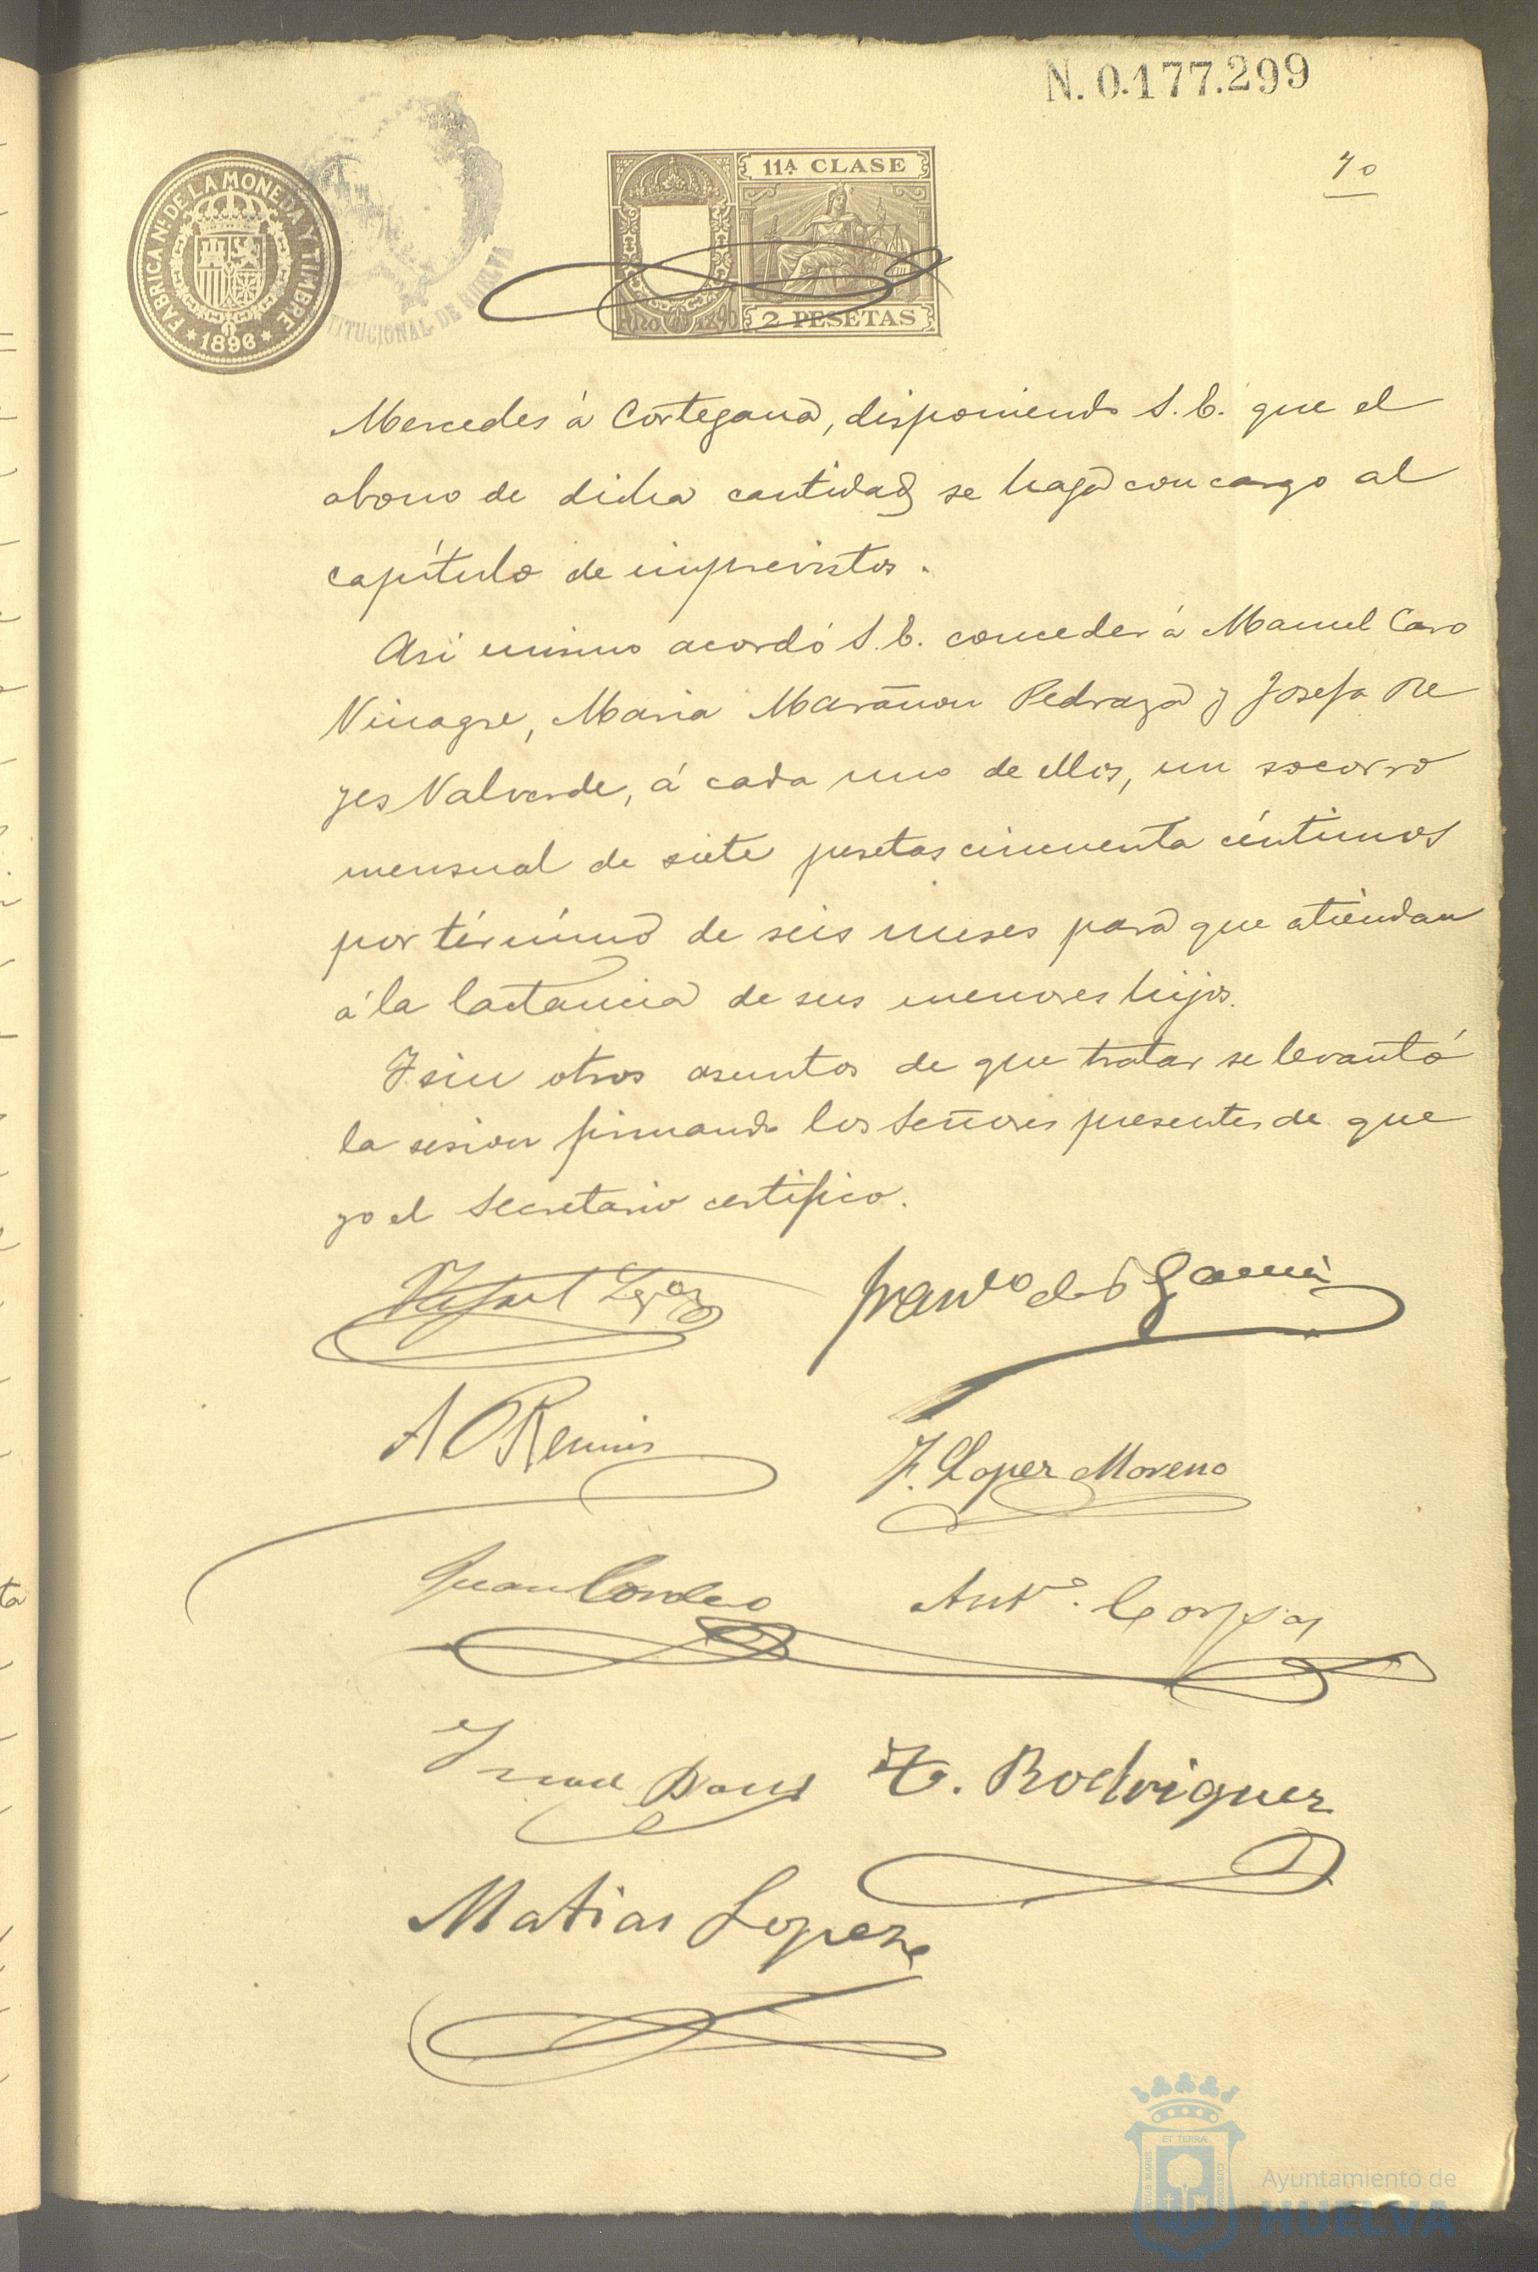 N. 0.177.299
70
FABRICA NL DE LA MONEDA Y TIMBRE
* 1896 *
TITUCIONAL DE HUELVA
11ª CLASE
2 PESETAS
Mercedes á Cortegana, disponiendo S. E. que el
abono de dicha cantidad se haga con cargo al
capítulo de imprevistos.
Asi mismo acordó S. E. conceder á Manuel Caro
Vinagre, Maria Marañon Pedraza y Josefa Re
yes Valverde, á cada uno de ellos, un socorro
mensual de siete pesetas cincuenta céntimos
por término de seis meses para que atiendan
á la lactancia de sus menores hijos.
Y sin otros asuntos de que tratar se levantó
la sesion firmando los Señores presentes de que
yo el Secretario certifico.
Rafael
Franco de P Garcia
A O
F. Lopez Moreno
Juan Cordero
Anto.
Rodriguez
Matias Lopez
ET TERRAE
Ayuntamiento de
HUELVA